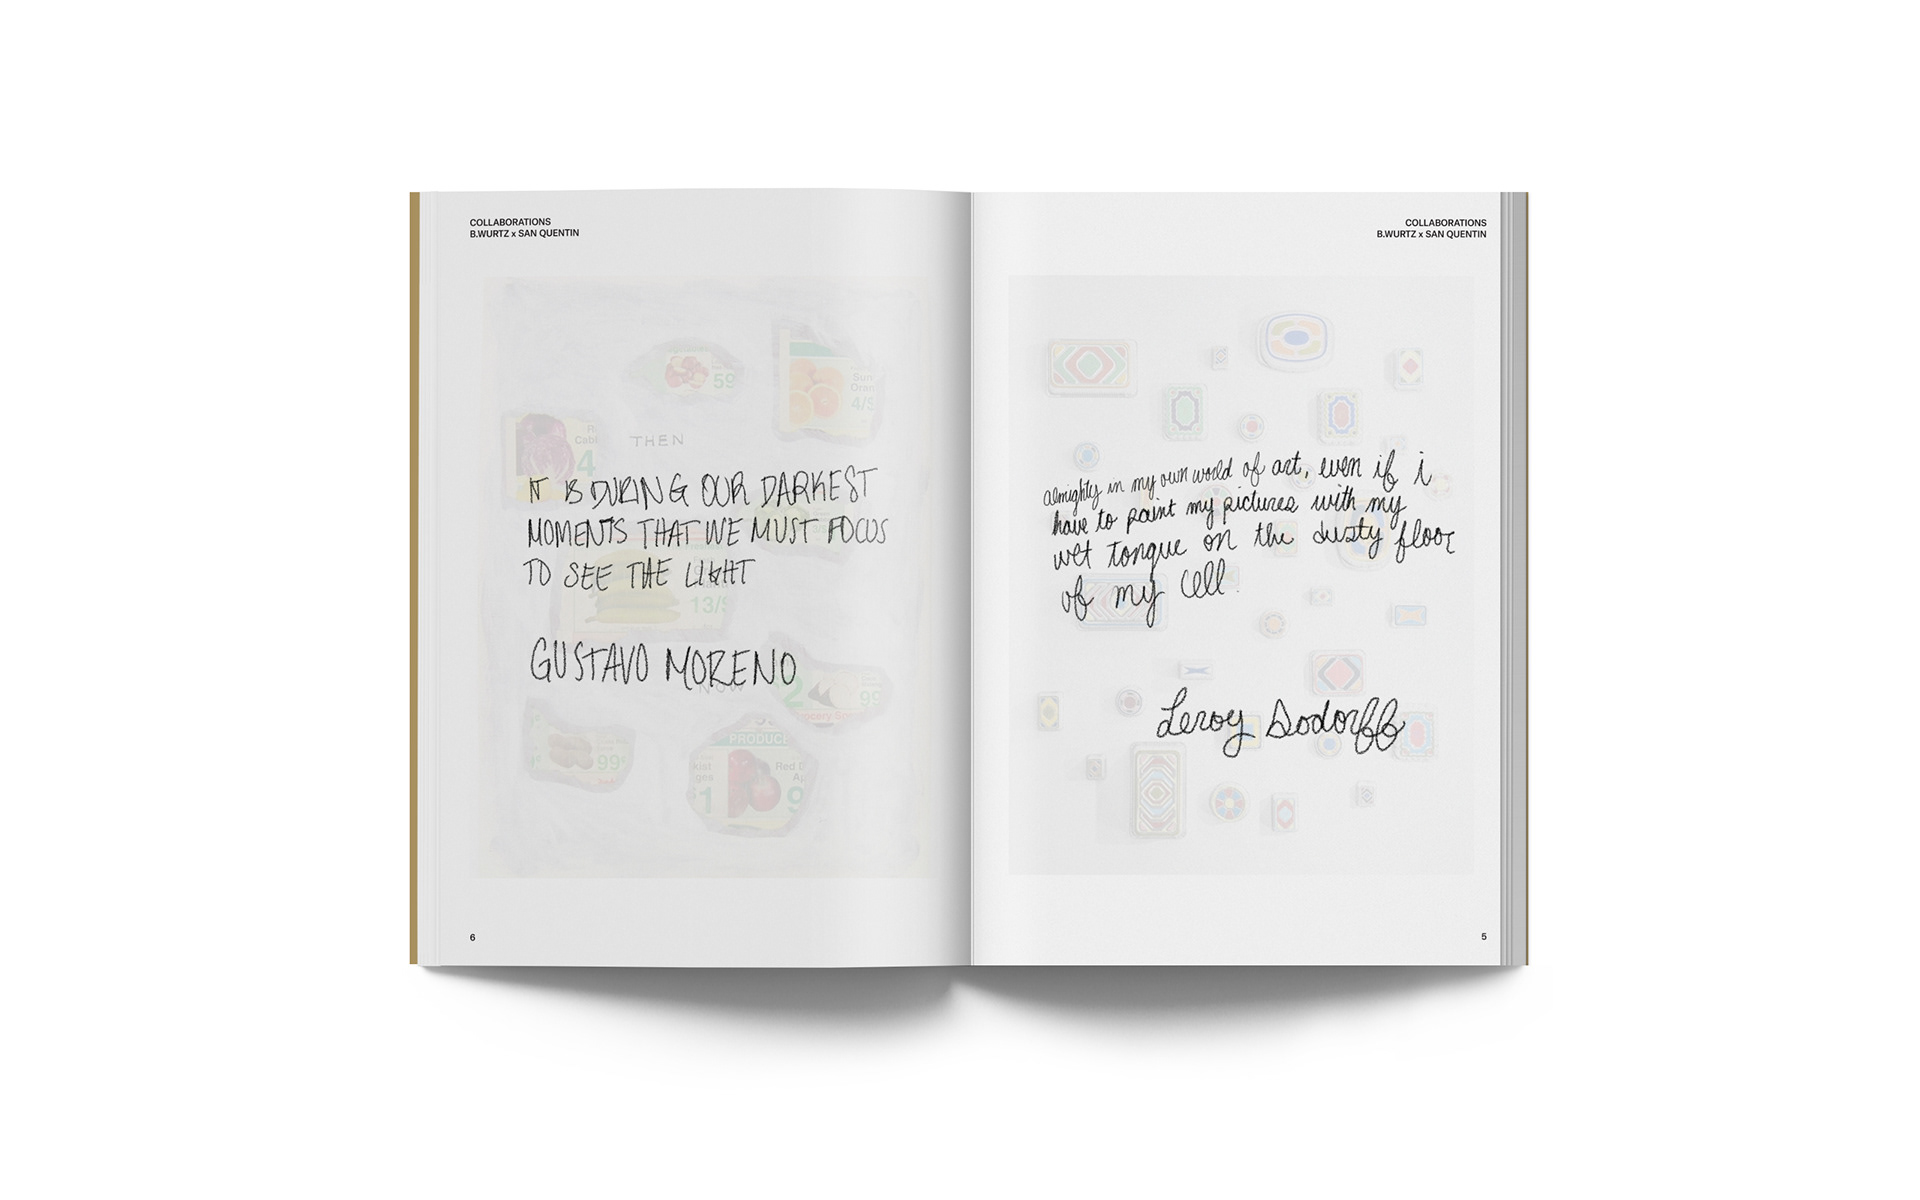 COLLABORATIONS
B.WURTZ x SAN QUENTIN
59
Sun
Oran
4/$
R
Cabb
4
THEN
IT IS DURING OUR DARKEST
MOMENTS THAT WE MUST FOCUS
TO SEE THE LIGHT
13/$
GUSTAVO MORENO
NOW
2
99
ocery
99¢
PRODUCE
kist
ges
$1
Red D
Ap
9
6
COLLABORATIONS
B.WURTZ x SAN QUENTIN
almighty in my own world of art, even if i
have to paint my pictures with my
wet tongue on the dusty floor
of my cell.
Leroy Dodorff
5